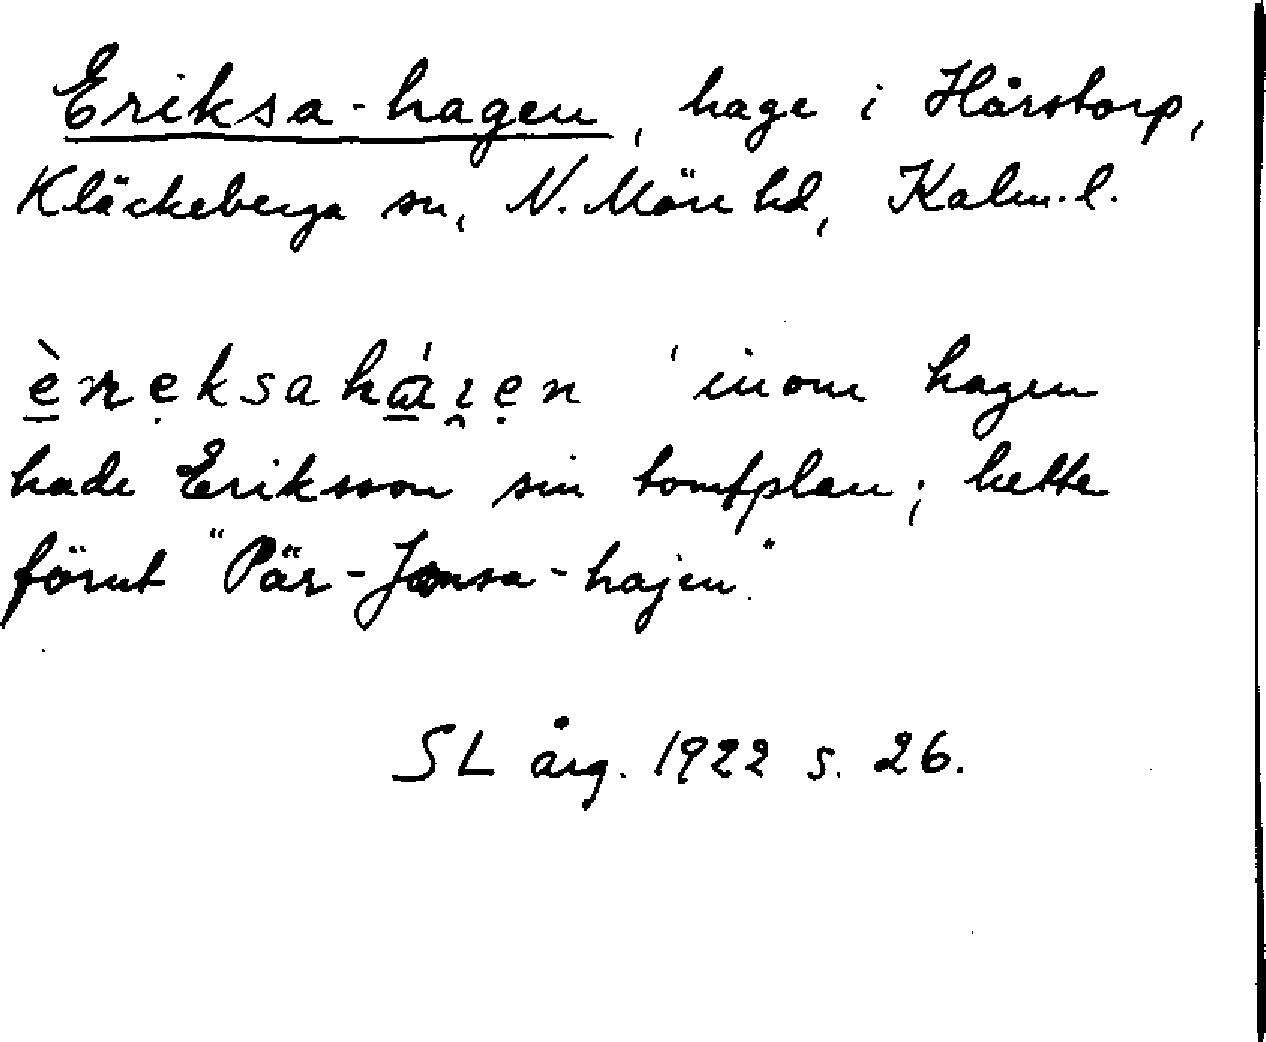 Eriksa-hagen, hage i Hårstorp,
Kläckeberga sn, N. Möre hd, Kalm. l.
èrẹksahá̱ı̯ẹn 'inom hagen
hade Eriksson sin tomtplan; hette
förut "Pär-Jonsa-hajen."
SL årg. 1922 s. 26.